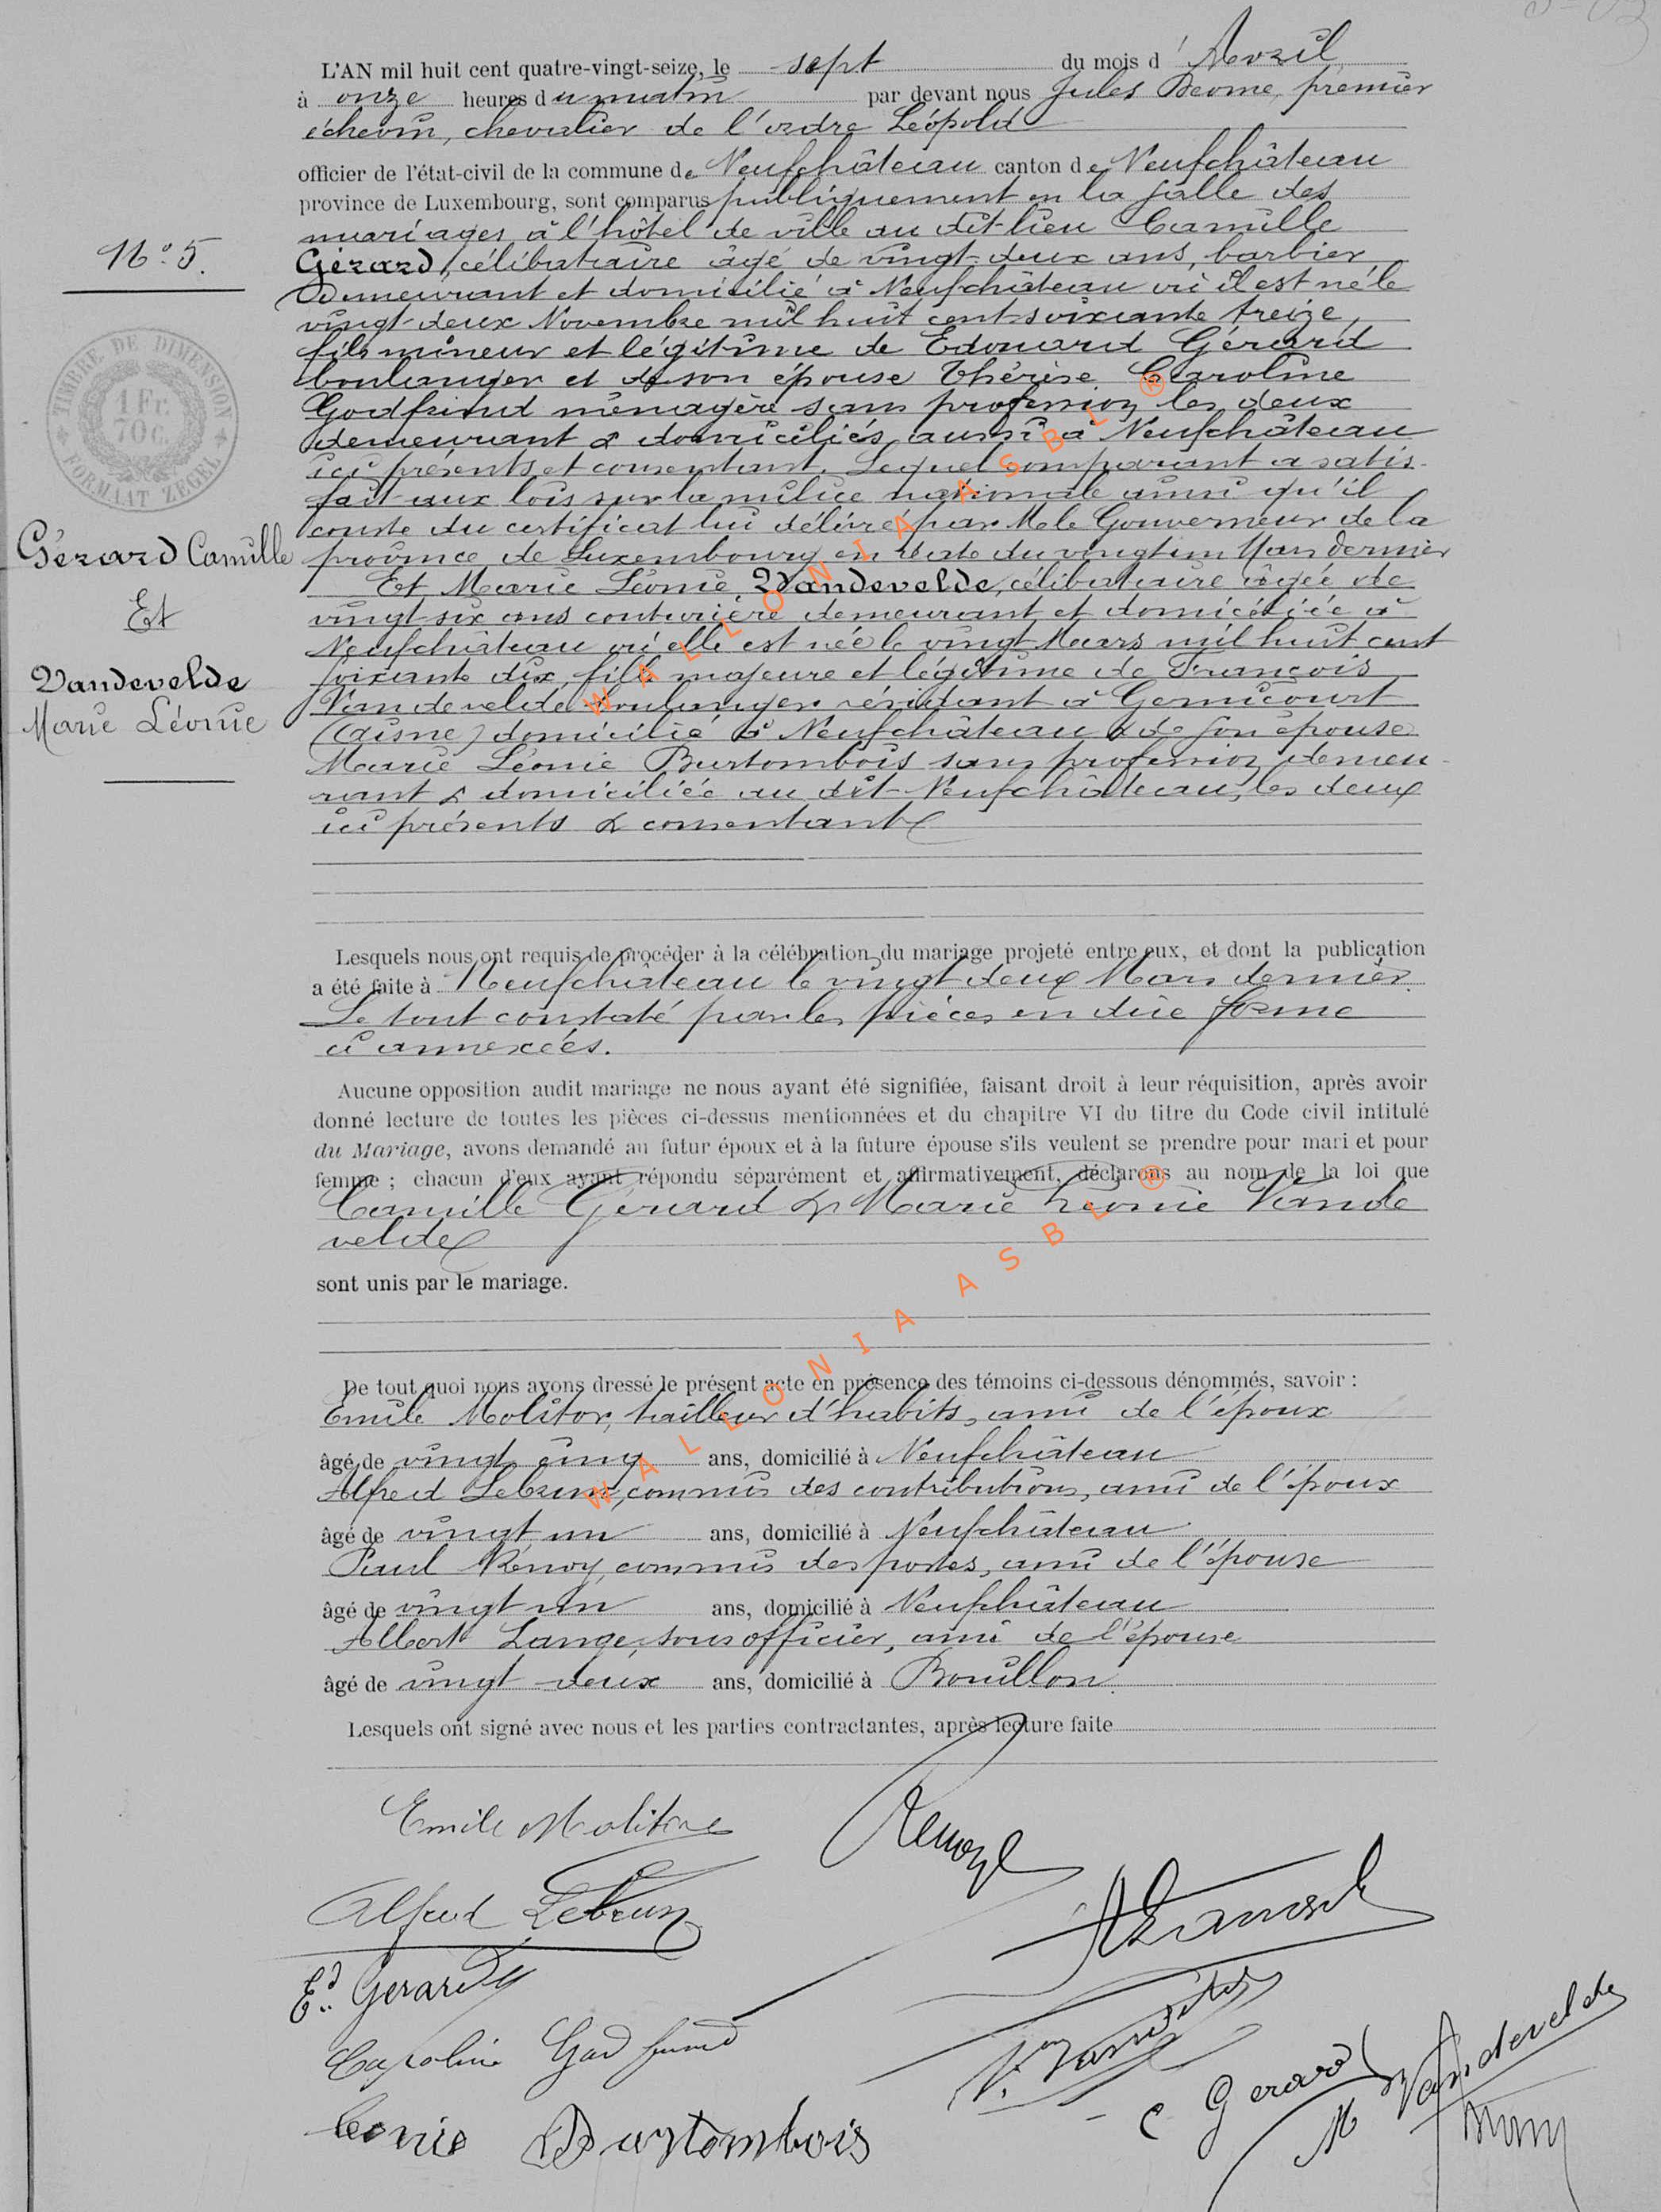 L'AN mil huit cent quatre-vingt-seize, le sept du mois d'Avril
à onze heures du matin par devant nous Jules premier
échevin, chevalier de l'ordre Léopold
officier de l'état-civil de la commune de Neufchâteau canton de Neufchâteau
province de Luxembourg, sont comparus publiquement en la salle des
mariages à l'hôtel de ville au dit-lieu Camille
Gérard, célibataire âgé de vingt-deux ans, barbier
demeurant et domicilié à Neufchâteau où il est né le
vingt-deux Novembre mil huit cent soixante treize,
fils mineur et légitime de Edouard Gérard
boulanger et de son épouse Thérèse Caroline
Godfrind ménagère sans profession les deux
demeurant & domiciliés aussi à Neufchâteau
ici présents et consentant. Lequel comparant a satis-
fait aux lois sur la milice nationale ainsi qu'il
conste du certificat lui délivré par M le Gouverneur de la
province de Luxembourg en date du vingt un Mars dernier
Et Marie Léonie Vandevelde, célibataire âgée de
vingt-six ans couturière demeurant et domiciliée à
Neufchâteau où elle est née le vingt Mars mil huit cent
soixante dix, fille majeure et légitime de François
Vandevelde boulanger résidant à Gernicourt
(Aisne) domicilié à Neufchâteau & de son épouse
Marie Léonie Burtombois sans profession demeu-
rant & domiciliée au dit Neufchâteau, les deux
ici présents & consentants
Nº 5.
TIMBRE DE DIMENSION
1 Fr. 70 c.
FORMAAT ZEGEL
Gérard Camille
Et
Vandevelde
Marie Léonie
Lesquels nous ont requis de procéder à la célébration du mariage projeté entre eux, et dont la publication
a été faite à Neufchâteau le vingt deux Mars dernier.
Le tout constaté par les pièces en due forme
ci annexées.
Aucune opposition audit mariage ne nous ayant été signifiée, faisant droit à leur réquisition, après avoir
donné lecture de toutes les pièces ci-dessus mentionnées et du chapitre VI du titre du Code civil intitulé
du Mariage, avons demandé au futur époux et à la future épouse s'ils veulent se prendre pour mari et pour
femme ; chacun d'eux ayant répondu séparément et affirmativement, déclarons au nom de la loi que
Camille Gérard & Marie Léonie Vande
velde
sont unis par le mariage.
De tout quoi nous avons dressé le présent acte en présence des témoins ci-dessous dénommés, savoir :
Emile Molitor, tailleur d'habits, ami de l'époux
âgé de vingt cinq ans, domicilié à Neufchâteau
Alfred Lebrun, commis des contributions, ami de l'époux
âgé de vingt un ans, domicilié à Neufchâteau
Paul Rénoy, commis des postes, ami de l'épouse
âgé de vingt un ans, domicilié à Neufchâteau
Albert Lange, sous officier, ami de l'épouse
âgé de vingt-deux ans, domicilié à Bouillon.
Lesquels ont signé avec nous et les parties contractantes, après lecture faite
Emile Molitor
Renoy
Alfred Lebrun
Ed. Gerard
Caroline Godfrind
C Gerard
M Vandevelde
Leonie Burtombois
WALLONIA ASBL ®
WALLONIA ASBL ®